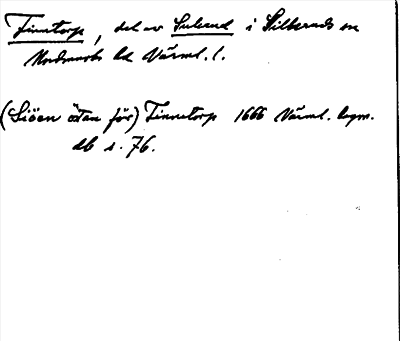 Finnetorp, del av Sulerud i Silbodals sn
Nordmarks hd Värml. l.
(Siöen östan för) Finnetorp 1666 Värml. legm.
db s. 76.